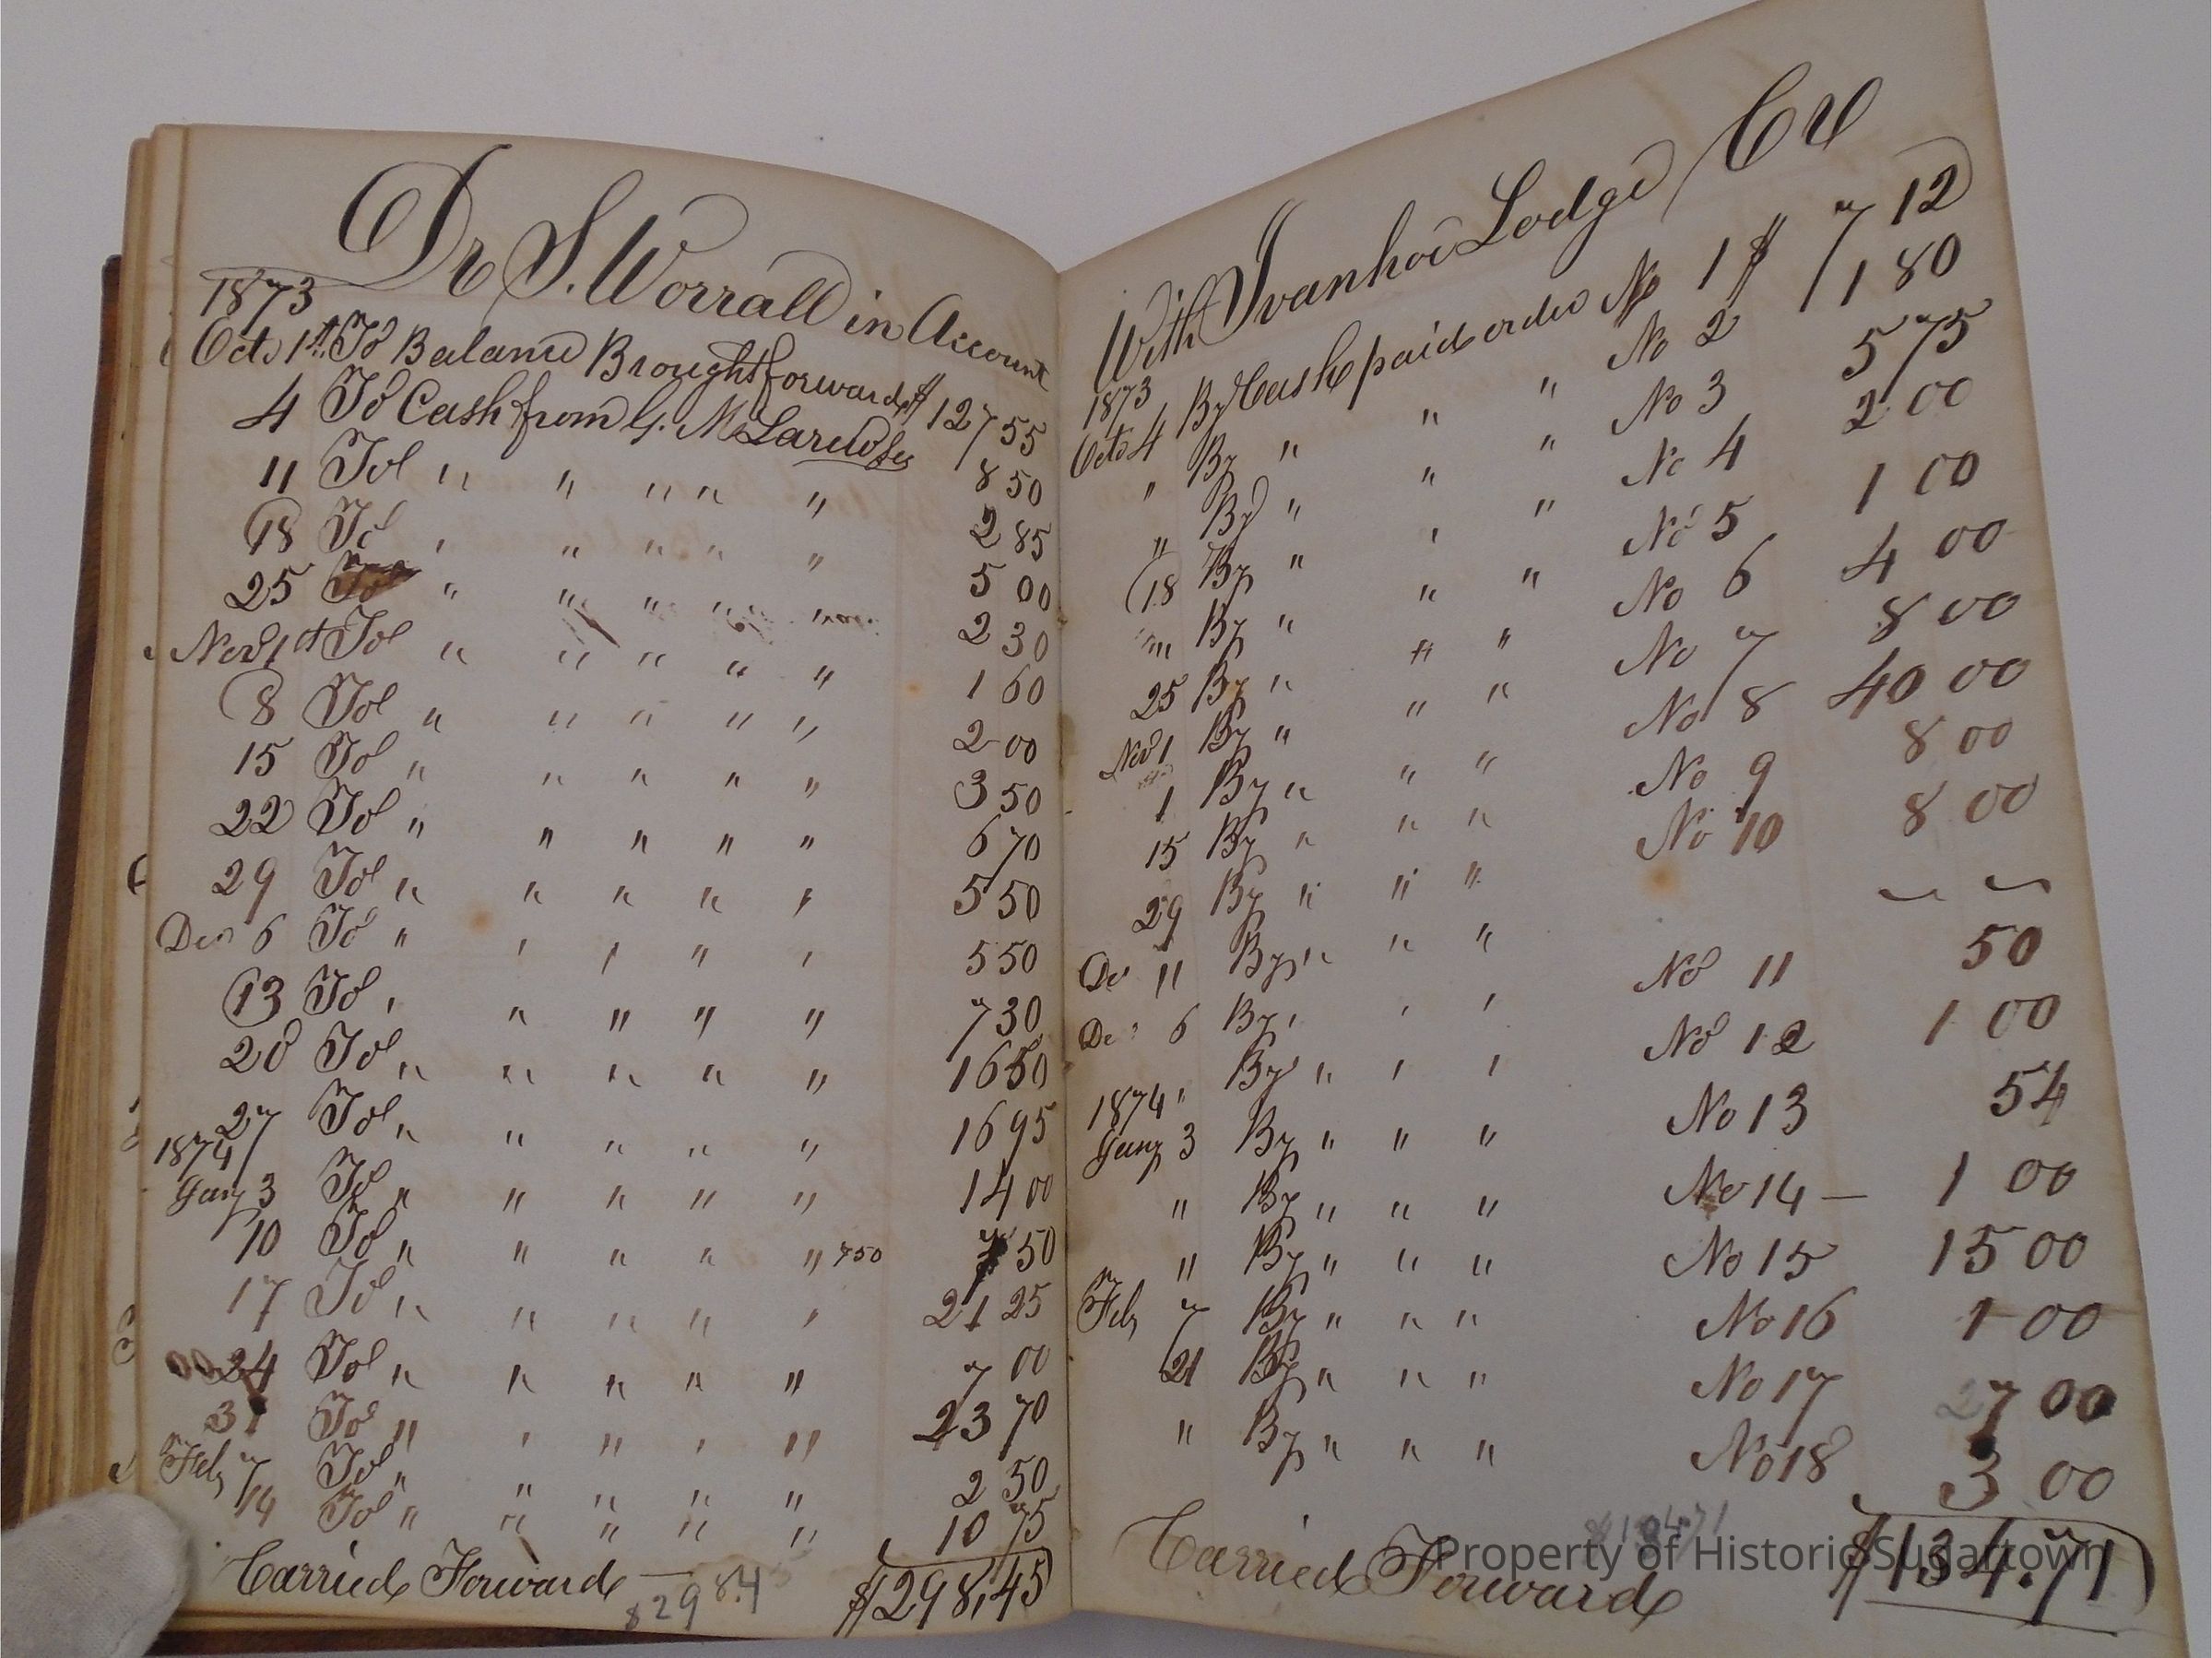 Dr S. Worrall in Account
1873
Oct 1st To Balance Brought forward $ 127 55
4 To Cash from G. McLaren Sec 8 50
11 To " " " " " 2 85
18 To " " " " " 5 00
25 To " " " " " 2 30
Nov 1st To " " " " " 1 60
8 To " " " " " 2 00
15 To " " " " " 3 50
22 To " " " " " 6 70
29 To " " " " " 5 50
Dec 6 To " " " " " 5 50
13 To " " " " " 7 30
20 To " " " " " 16 50
27 To " " " " " 16 95
1874
Jany 3 To " " " " " 14 00
10 To " " " " " 750 7 50
17 To " " " " " 21 25
24 To " " " " " 7 00
31 To " " " " " 23 70
Feby 7 To " " " " " 2 50
14 To " " " " " 10 75
Carried Forward $298,45
With Ivanhoe Lodge Cr
1873
Oct 4 By Cash paid order No 1 $ 7 12
" By " " " No 2 1 80
" By " " " No 3 5 75
18 By " " " No 4 2 00
" By " " " No 5 1 00
25 By " " " No 6 4 00
Nov 1 By " " " No 7 8 00
1 By " " " No 8 40 00
15 By " " " No 9 8 00
29 By " " " No 10 8 00
De 11 By " " "
Dec 6 By " " " No 11 50
" By " " " No 12 1 00
1874
Jany 3 By " " " No 13 54
" By " " " No 14 — 1 00
" By " " " No 15 15 00
Feby 7 By " " " No 16 1 00
21 By " " " No 17 27 00
" By " " " No 18 3 00
Carried Forward $134.71
Property of Historic Sugartown